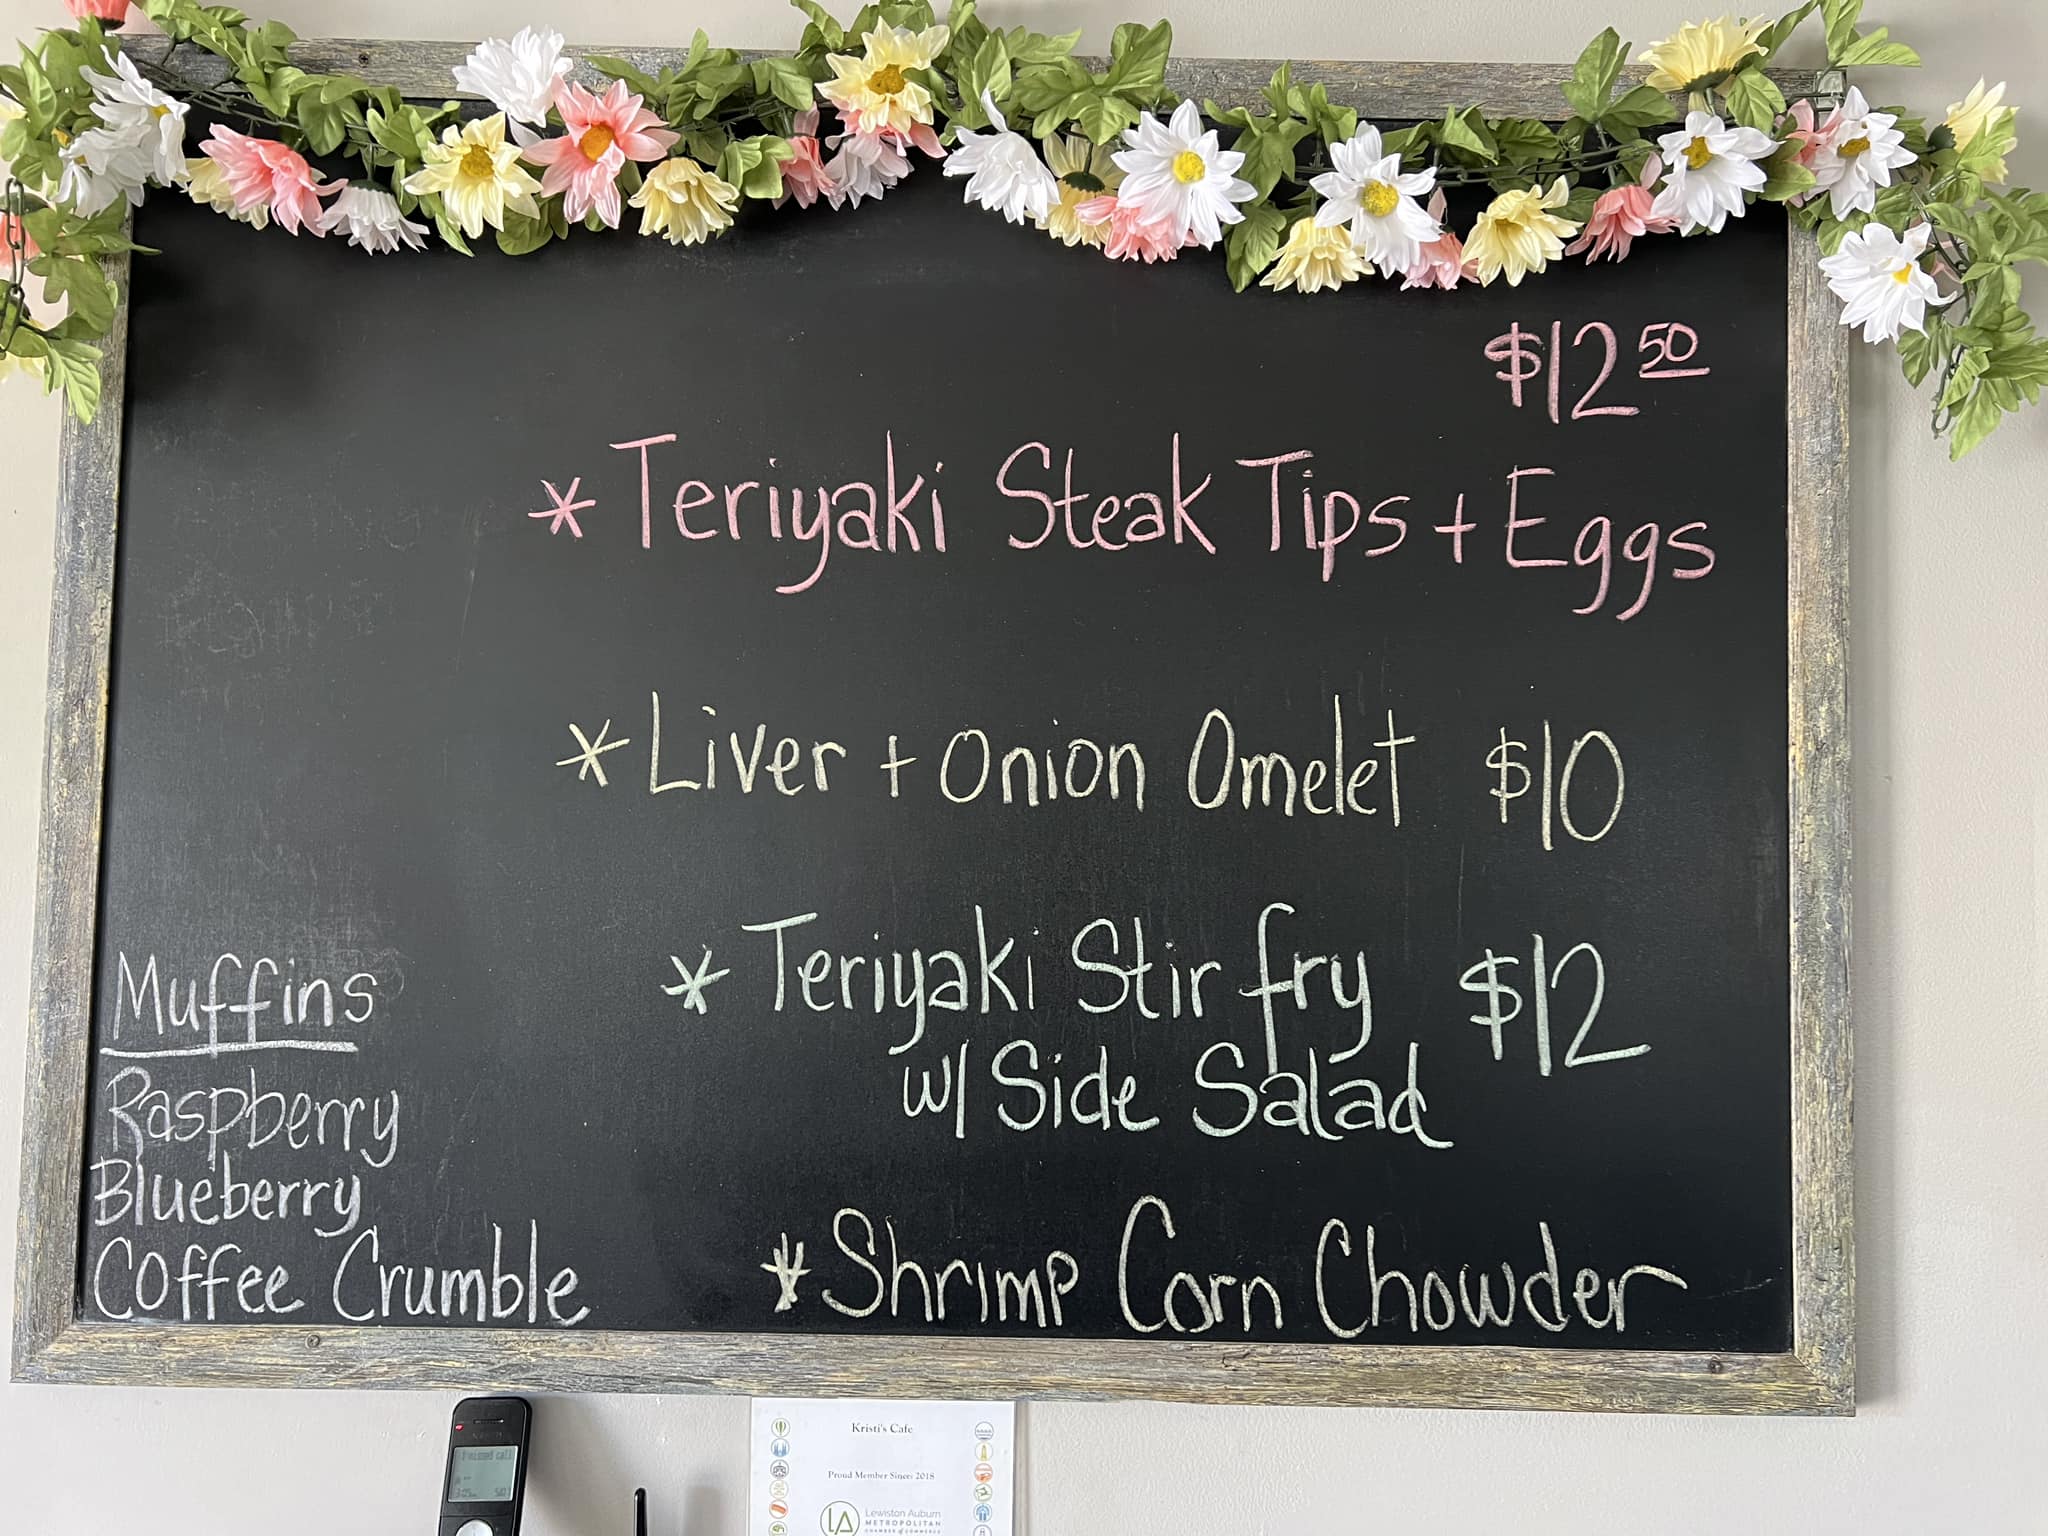 $12 50
* Teriyaki Steak Tips + Eggs
* Liver + Onion Omelet $10
* Teriyaki Stir fry $12
w/ Side Salad
* Shrimp Corn Chowder
Muffins
Raspberry
Blueberry
Coffee Crumble
Kristi's Cafe
Proud Member Since: 2018
LA
Lewiston Auburn
METROPOLITAN
CHAMBER of COMMERCE